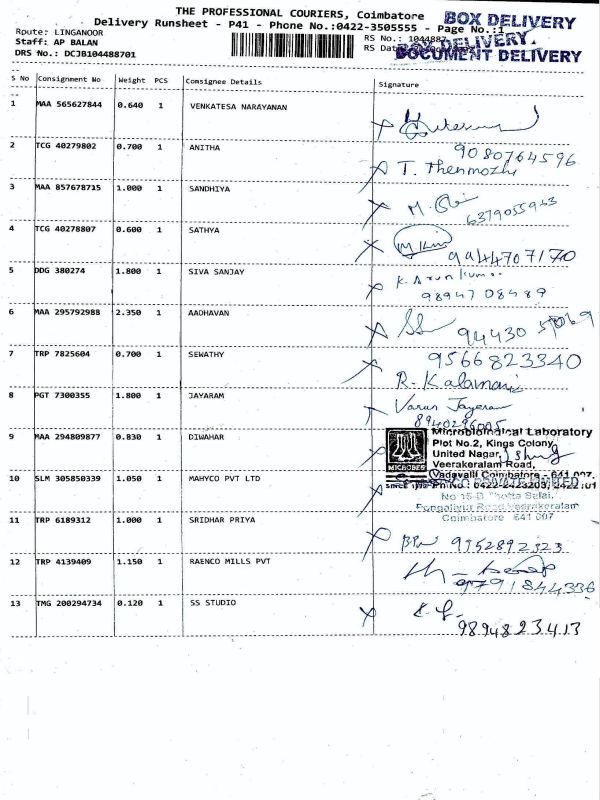 THE PROFESSIONAL COURIERS, Coimbatore
BOX DELIVERY
Delivery Runsheet - P41 - Phone No.:0422-3505555 - Page No.:1
Route: LINGANOOR
RS No.: 1044887
BOX DELIVERY
Staff: AP BALAN
RS Dat
DOCUMENT DELIVERY
DRS No.: DCJB104488701
S No Consignment No Weight PCS Consignee Details Signature
1 MAA 565627844 0.640 1 VENKATESA NARAYANAN
9080764596
2 TCG 40279802 0.700 1 ANITHA
T. Thenmozhi
3 MAA 857678715 1.000 1 SANDHIYA
6379055963
4 TCG 40278807 0.600 1 SATHYA
9944707170
5 DDG 380274 1.800 1 SIVA SANJAY
K. Arun Kumar
9894708489
6 MAA 295792988 2.350 1 AADHAVAN
94430
7 TRP 7825604 0.700 1 SEWATHY
9566823340
R. Kalamani
8 PGT 7300355 1.800 1 JAYARAM
Varun Jayaram
8940296005
9 MAA 294809877 0.830 1 DIWAHAR
Microbiological Laboratory
Plot No.2, Kings Colony,
United Nagar,
Veerakeralam Road,
Vadavalli Coimbatore - 641 007.
MICROBES
10 SLM 305850339 1.050 1 MAHYCO PVT LTD
Ph No : 0422-2423203, 2422101
Pongaliyur Road Veerakeralam
Coimbatore 641 007
11 TRP 6189312 1.000 1 SRIDHAR PRIYA
9952892323
12 TRP 4139409 1.150 1 RAENCO MILLS PVT
9791844336
13 TMG 200294734 0.120 1 SS STUDIO
9894823413